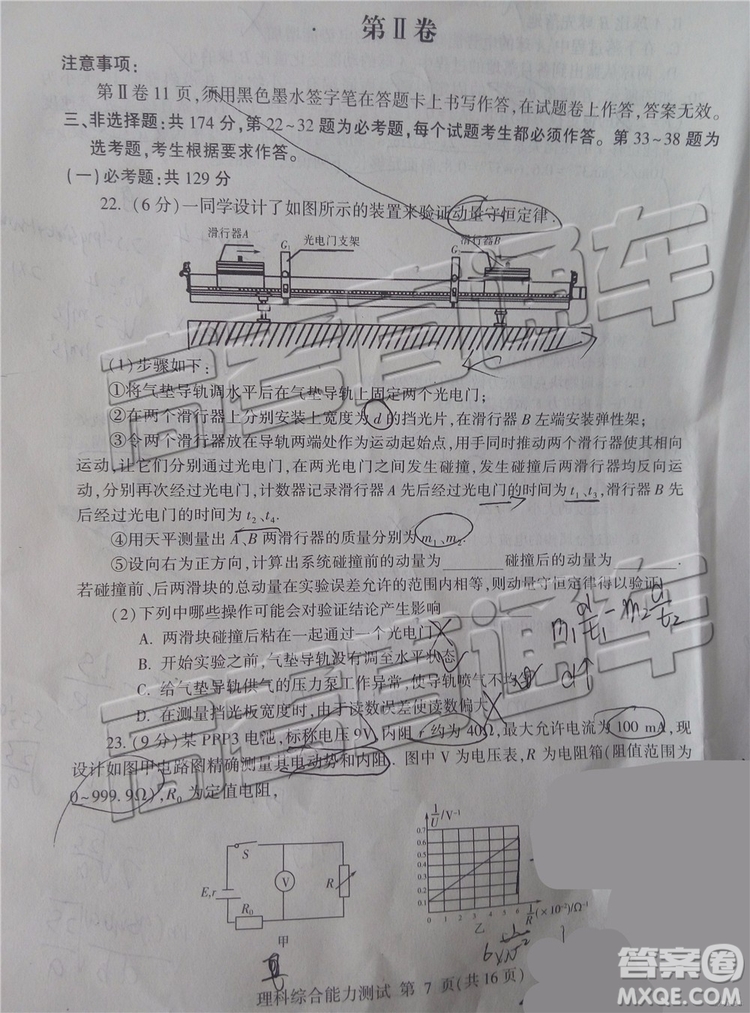 第Ⅱ卷
注意事项:
第Ⅱ卷11页,须用黑色墨水签字笔在答题卡上书写作答,在试题卷上作答,答案无效。
三、非选择题:共174分,第22~32题为必考题,每个试题考生都必须作答。第33~38题为
选考题,考生根据要求作答。
(一)必考题:共129分
22.(6分)一同学设计了如图所示的装置来验证动量守恒定律.
滑行器A G₁ 光电门支架 G 滑行器B
(1)步骤如下:
①将气垫导轨调水平后在气垫导轨上固定两个光电门;
②在两个滑行器上分别安装上宽度为d的挡光片,在滑行器B左端安装弹性架;
③令两个滑行器放在导轨两端处作为运动起始点,用手同时推动两个滑行器使其相向
运动,让它们分别通过光电门,在两光电门之间发生碰撞,发生碰撞后两滑行器均反向运
动,分别再次经过光电门,计数器记录滑行器A先后经过光电门的时间为t₁、t₃,滑行器B先
后经过光电门的时间为t₂、t₄.
④用天平测量出A、B两滑行器的质量分别为m₁、m₂.
⑤设向右为正方向,计算出系统碰撞前的动量为______碰撞后的动量为______.
若碰撞前、后两滑块的总动量在实验误差允许的范围内相等,则动量守恒定律得以验证.
(2)下列中哪些操作可能会对验证结论产生影响______
A. 两滑块碰撞后粘在一起通过一个光电门
B. 开始实验之前,气垫导轨没有调至水平状态
C. 给气垫导轨供气的压力泵工作异常,使导轨喷气不均匀
D. 在测量挡光板宽度时,由于读数误差使读数偏大
m₁ d/t₁ − m₂ d/t₂
d↑
23.(9分)某PRP3电池,标称电压9V,内阻r约为40Ω,最大允许电流为100 mA,现
设计如图甲电路图精确测量其电动势和内阻. 图中V为电压表,R为电阻箱(阻值范围为
0~999.9Ω),R₀为定值电阻,
S
E,r V R
R₀
甲
1/U /V⁻¹
0.7
0.6
0.5
0.4
0.3
0.2
0.1
0 1 2 3 4 5 6
1/R (×10⁻²)/Ω⁻¹
乙
理科综合能力测试 第 7 页(共16页)
高考直通车
高考直通车
答案卷
www.daanjuan.com